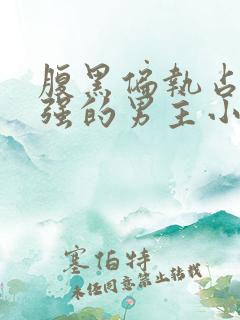 腹黑偏执占
强的男主小
塞伯特
未经同意禁止转载